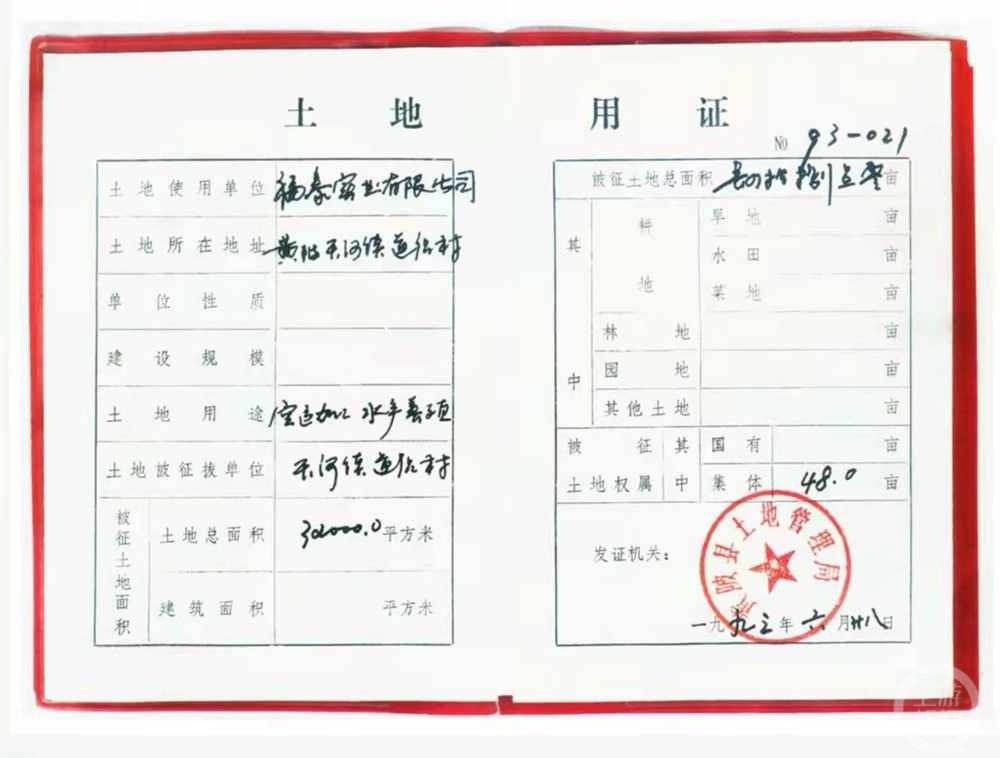 土地用证
No 93-021
土地使用单位 福泰实业有限公司
土地所在地址 黄陂天河镇道店村
单位性质
建设规模
土地用途 水产养殖
土地被征拨单位 天河镇道店村
被征土地面积
土地总面积 平方米
建筑面积 平方米
被征土地总面积 肆拾捌点零 亩
其中
耕地
旱地 亩
水田 亩
菜地 亩
林地 亩
园地 亩
其他土地 亩
被征土地权属
其中
国有 亩
集体 48.0 亩
发证机关：
黄陂县土地管理局
一九九三年六月廿八日
上游